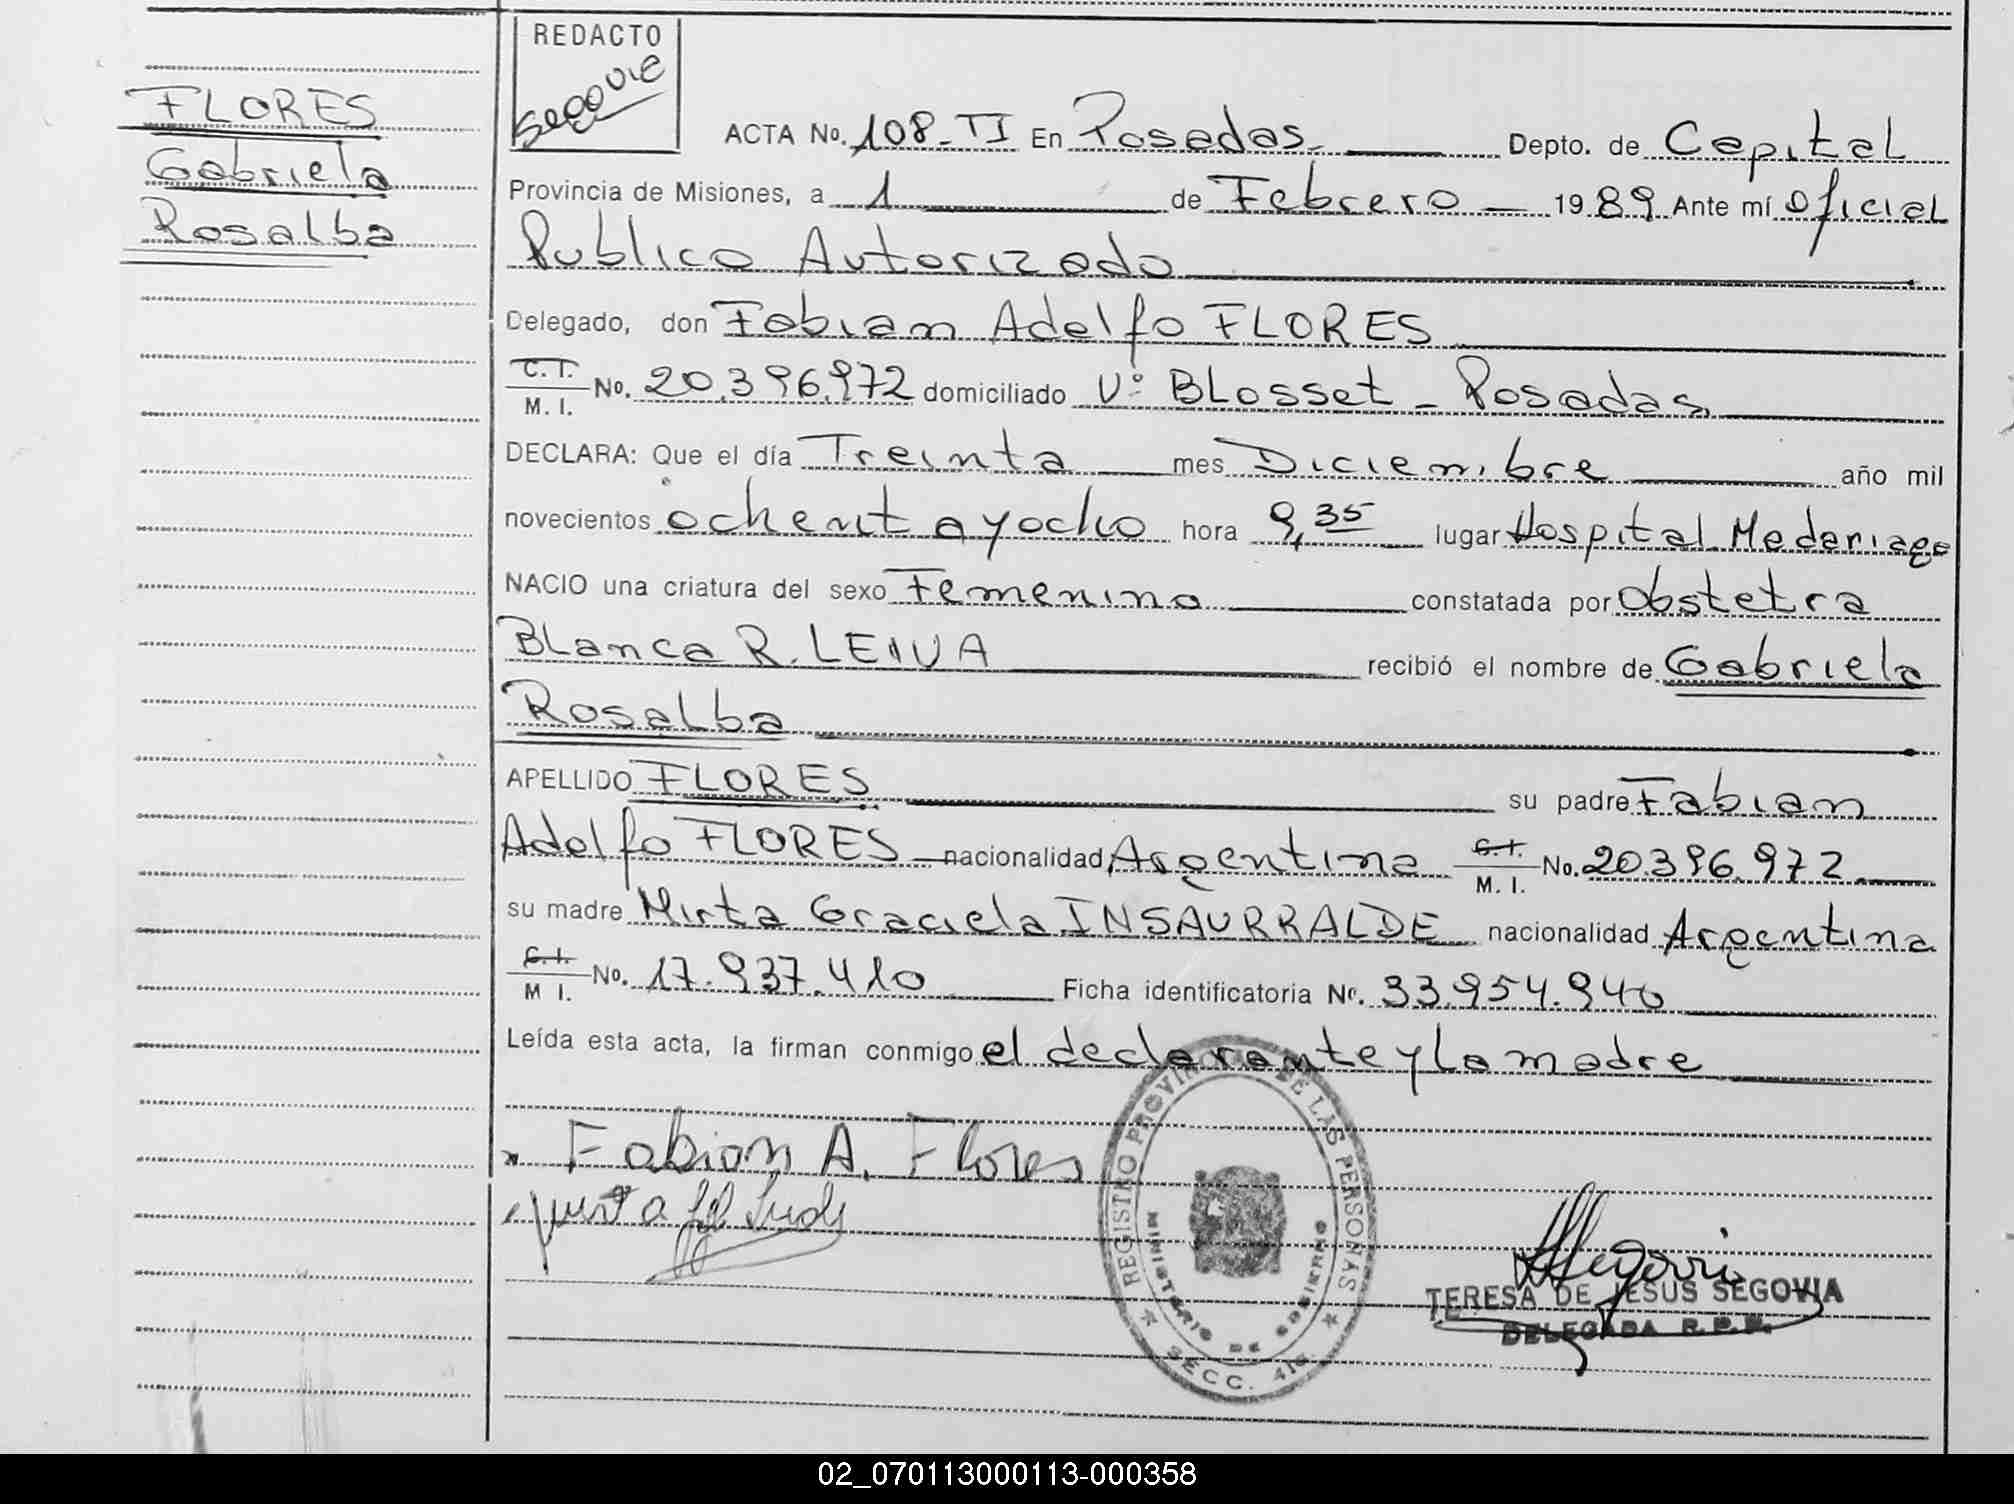 REDACTO
Segovia
FLORES
Gabriela
Rosalba
ACTA No. 108-TI En Posadas Depto. de Capital
Provincia de Misiones, a 1 de Febrero 1989 Ante mí Oficial
Publico Autorizado
Delegado, don Fabian Adolfo FLORES
C.I. M. I. No. 20.396.972 domiciliado Vº BLosset - Posadas
DECLARA: Que el día Treinta mes Diciembre año mil
novecientos ochentayocho hora 9,35 lugar Hospital Madariaga
NACIO una criatura del sexo Femenino constatada por Obstetra
Blanca R. LEIVA recibió el nombre de Gabriela
Rosalba
APELLIDO FLORES su padre Fabian
Adolfo FLORES nacionalidad Argentina C.I. M. I. No. 20.396.972
su madre Mirta Graciela INSAURRALDE nacionalidad Argentina
C.I. M I. No. 17.937.410 Ficha identificatoria No. 33.954.940
Leída esta acta, la firman conmigo el declarante y la madre
Fabian A. Flores
REGISTRO PROVINCIAL DE LAS PERSONAS
MINISTERIO DE GOBIERNO
SECC. 4ta.
Segovia
TERESA DE JESUS SEGOVIA
DELEGADA R. P. P.
02_070113000113-000358